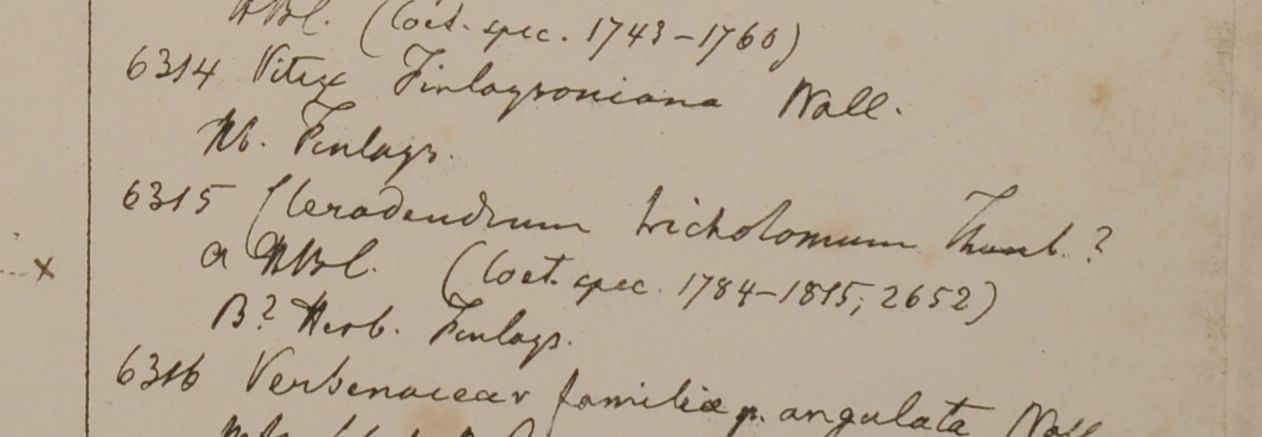 HBl. (Coet. spec. 1743-1760)
6314 Vitex Finlaysoniana Wall.
Hb. Finlays.
6315 Clerodendrum trichotomum Thunb.?
a HBl. (Coet. spec. 1784-1815; 2652)
x
B? Herb. Finlays.
6316 Verbenaceae familiæ p. angulata Wall